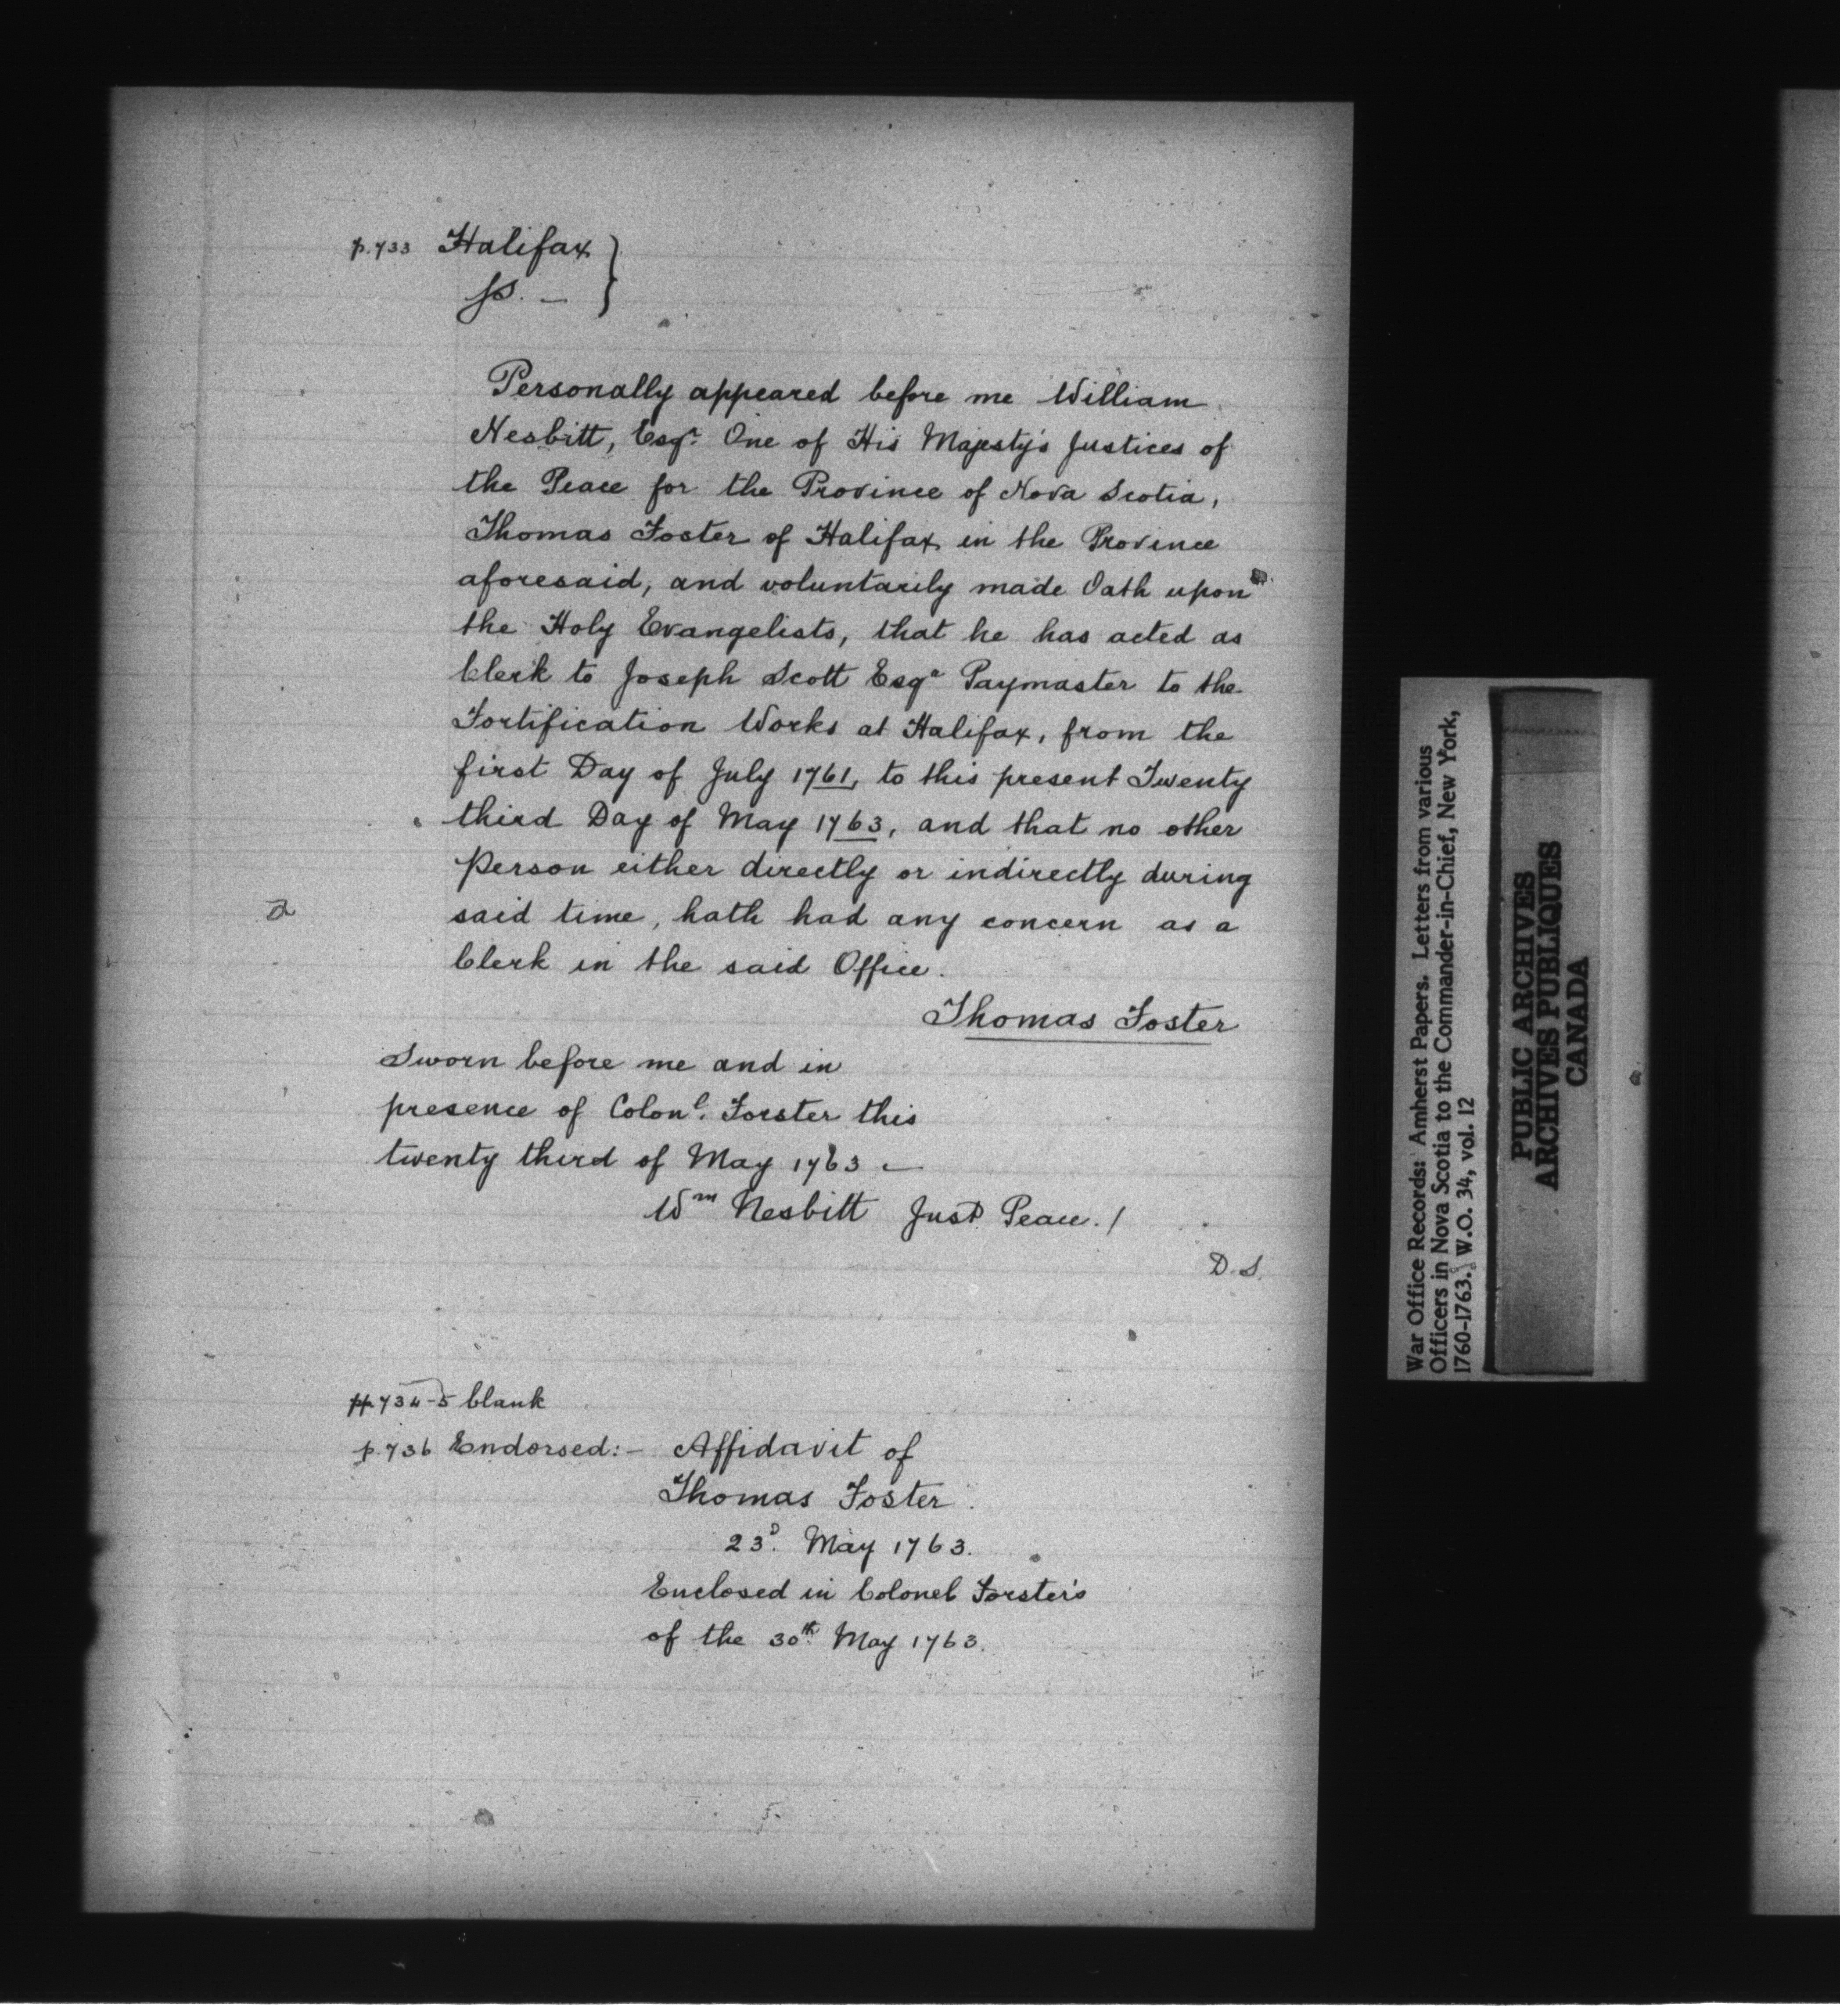 p.733 Halifax }
ss. —
Personally appeared before me William
Nesbitt, Esqr. One of His Majesty's Justices of
the Peace for the Province of Nova Scotia,
Thomas Foster of Halifax in the Province
aforesaid, and voluntarily made Oath upon
the Holy Evangelists, that he has acted as
Clerk to Joseph Scott Esqr Paymaster to the
Fortification Works at Halifax, from the
first Day of July 1761, to this present Twenty
third Day of May 1763, and that no other
Person either directly or indirectly during
said time, hath had any concern as a
Clerk in the said Office.
Thomas Foster
Sworn before me and in
presence of Colonl. Forster this
twenty third of May 1763 —
Wm Nesbitt Just Peace. /
D. S.
pp. 734-5 blank
p. 736 Endorsed:— Affidavit of
Thomas Foster.
23D. May 1763.
Enclosed in Colonel Forster's
of the 30th May 1763.
War Office Records: Amherst Papers. Letters from various
Officers in Nova Scotia to the Commander-in-Chief, New York,
1760-1763. W.O. 34, vol. 12
PUBLIC ARCHIVES
ARCHIVES PUBLIQUES
CANADA